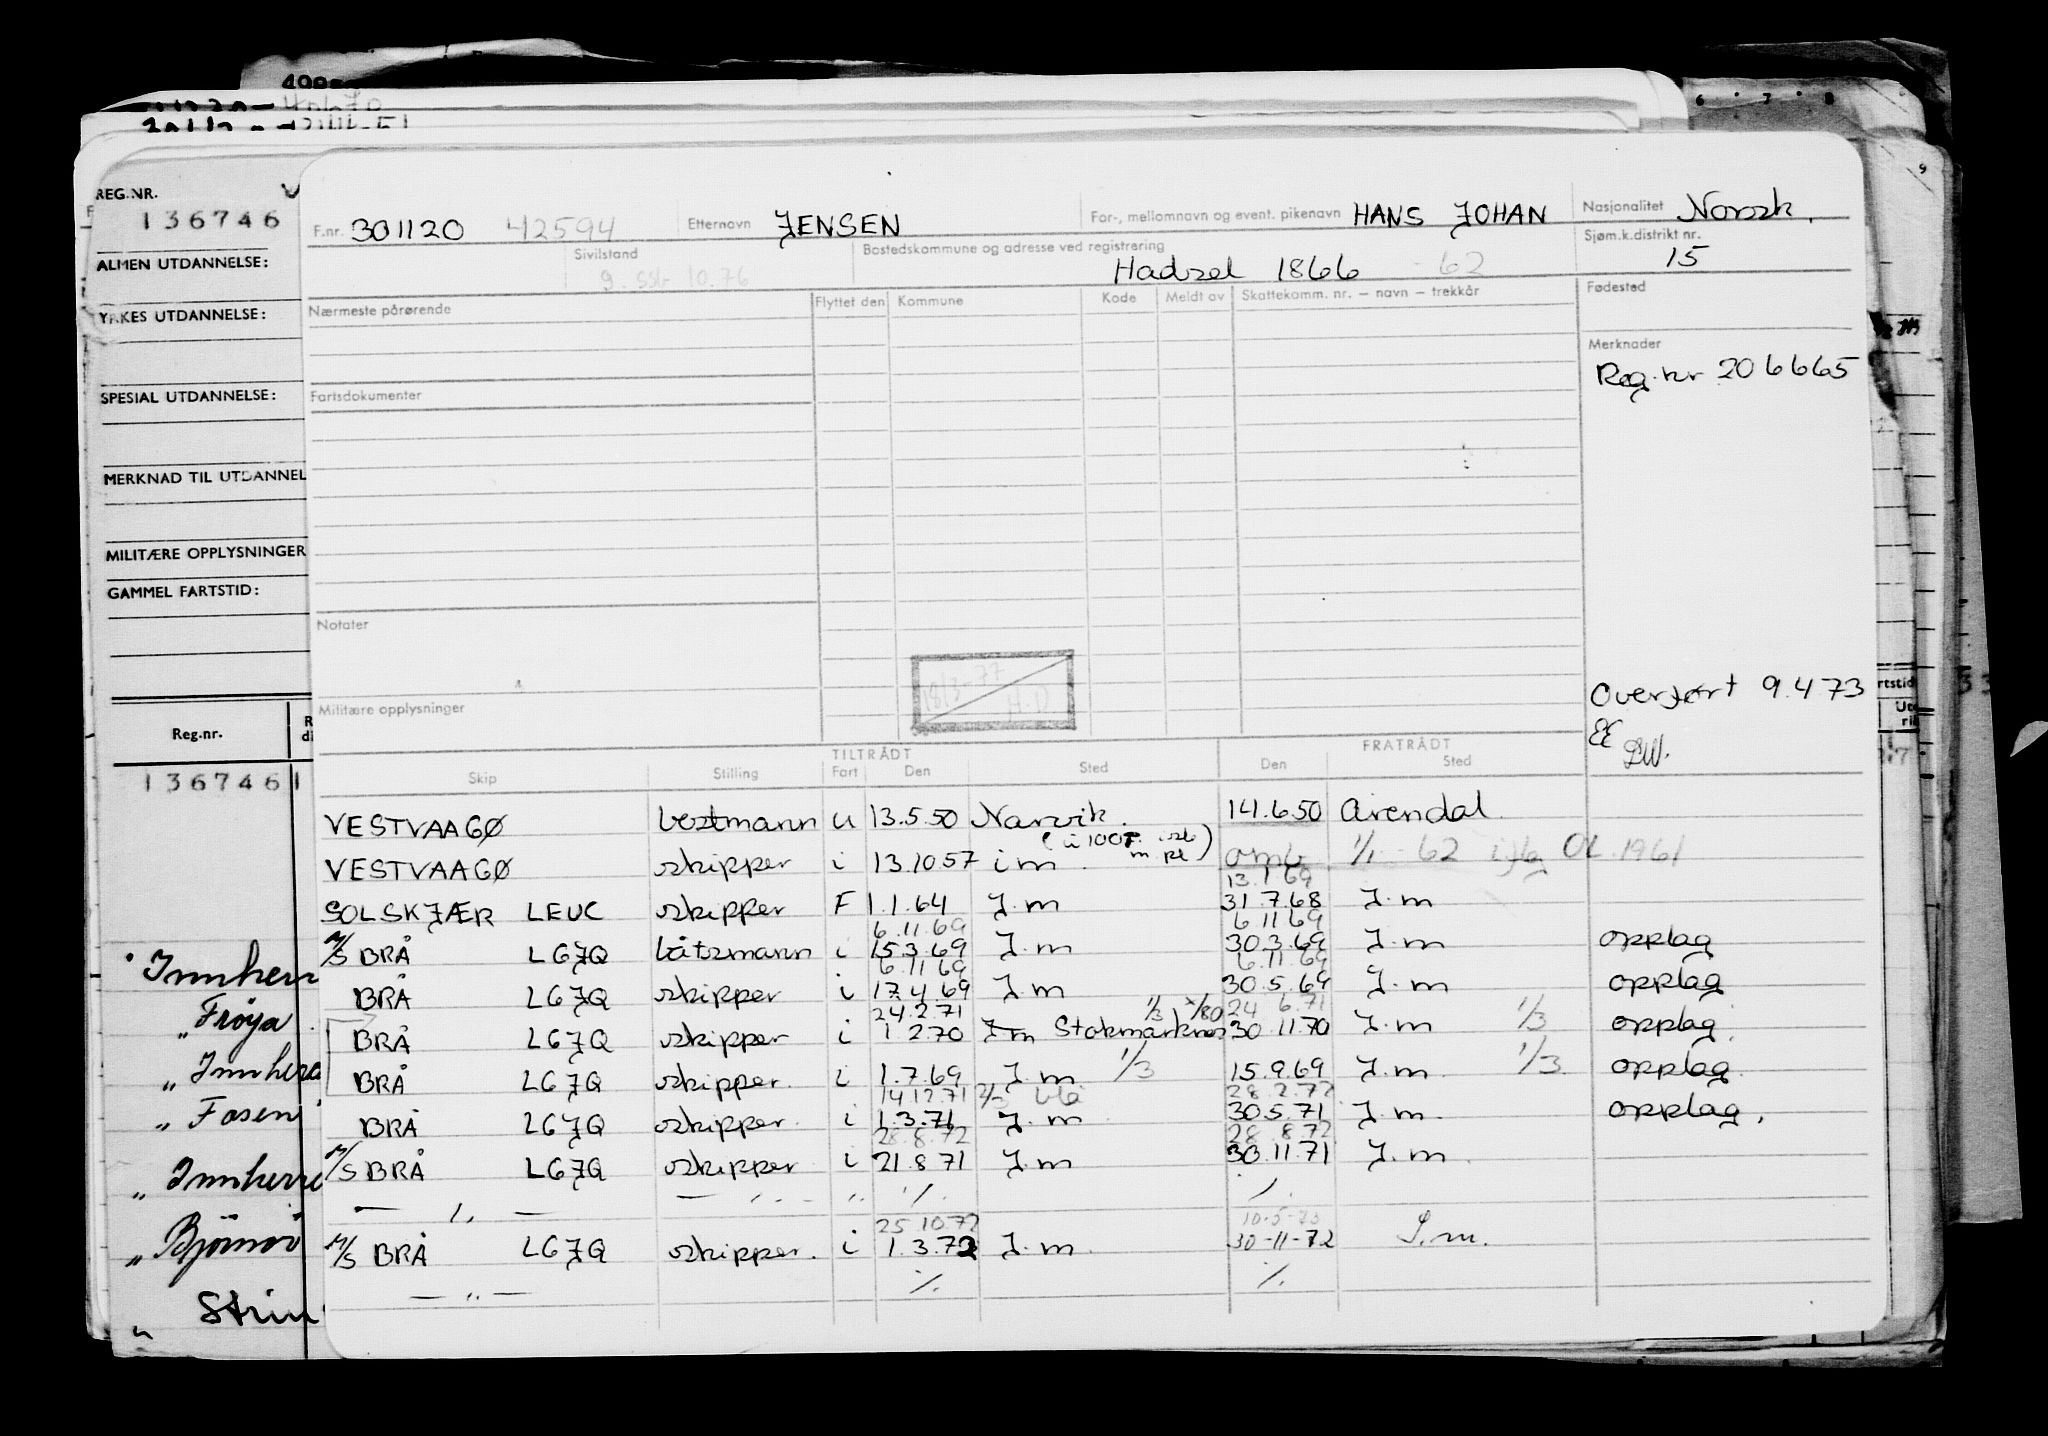 REG.NR.
136746
ALMEN UTDANNELSE:
YRKES UTDANNELSE:
SPESIAL UTDANNELSE:
MERKNAD TIL UTDANNEL
MILITÆRE OPPLYSNINGER
GAMMEL FARTSTID:
Reg.nr.
136746
Innherr
„ Frøya
„ Innherr
„ Fosen
„ Innherre
„ Bjørnör
F.nr. 301120 42594 Etternavn JENSEN For-, mellomnavn og event. pikenavn HANS JOHAN Nasjonalitet Norsk.
Sivilstand Bostedskommune og adresse ved registrering Hadsel 1866 - 62 Sjøm.k.distrikt nr. 15
Nærmeste pårørende Flyttet den Kommune Kode Meldt av Skattekomm. nr. – navn – trekkår Fødested
Merknader
Reg.nr 206665
Fartsdokumenter
Notater
18/3-77
H.D
Overført 9.4 73
Militære opplysninger
TILTRÅDT FRATRÅDT
Skip Stilling Fart Den Sted Den Sted
VESTVAAGØ bestmann u 13.5.50 Narvik. 14.6.50 Arendal
VESTVAAGØ skipper i 13.10 57 i m 1/1 - 62 1961
13.1 69
SOLSKJÆR LEUC skipper F 1.1.64 J.m 31.7.68 J.m
6.11.69 6.11 69
M/S BRÅ LGJQ båtsmann i 15.3.69 J.m 30.3.69 J.m opplag
6.11 69 6.11.69
BRÅ LGJQ skipper i 17.4.69 J.m 30.5.69 J.m opplag
24.2.71 1/3 24 6.71
BRÅ LGJQ skipper i 1.2.70 J.m Stokmarknes 30.11.70 J.m 1/3 opplag.
BRÅ LGJQ skipper. i 1.7.69 J.m 1/3 15.9.69 J.m 1/3 opplag.
14.12.71 28.2.72
BRÅ LGJQ skipper. i 1.3.71 J.m 30.5.71 J.m. opplag.
28.8.72 28.8.72
M/S BRÅ LGJQ skipper i 21.8 71 J.m 30.11.71 J.m.
— „ — — „ — „ ·/. ·/.
25.10.72 10-5-73
M/S BRÅ LGJQ skipper. i 1.3.72 J.m. 30-11-72 J.m.
— „ — ·/. ·/.